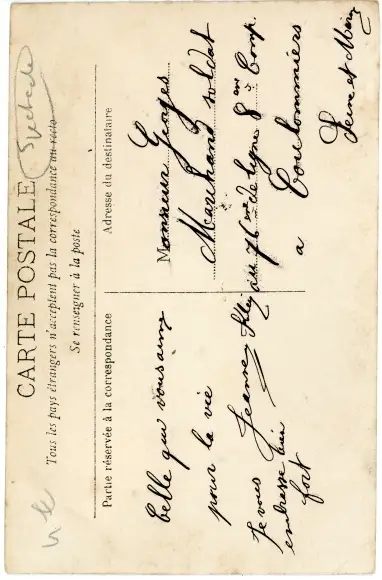 Spectacle
CARTE POSTALE
Tous les pays étrangers n'acceptent pas la correspondance au recto
Se renseigner à la poste
Partie réservée à la correspondance
Celle qui vous aime
pour la vie
Jeanne
Je vous
embrasse bien
fort
Adresse du destinataire
Monsieur Georges
Marchand soldat
au 76me de ligne 8eme Comp.
a Coulommiers
Seine et Marne